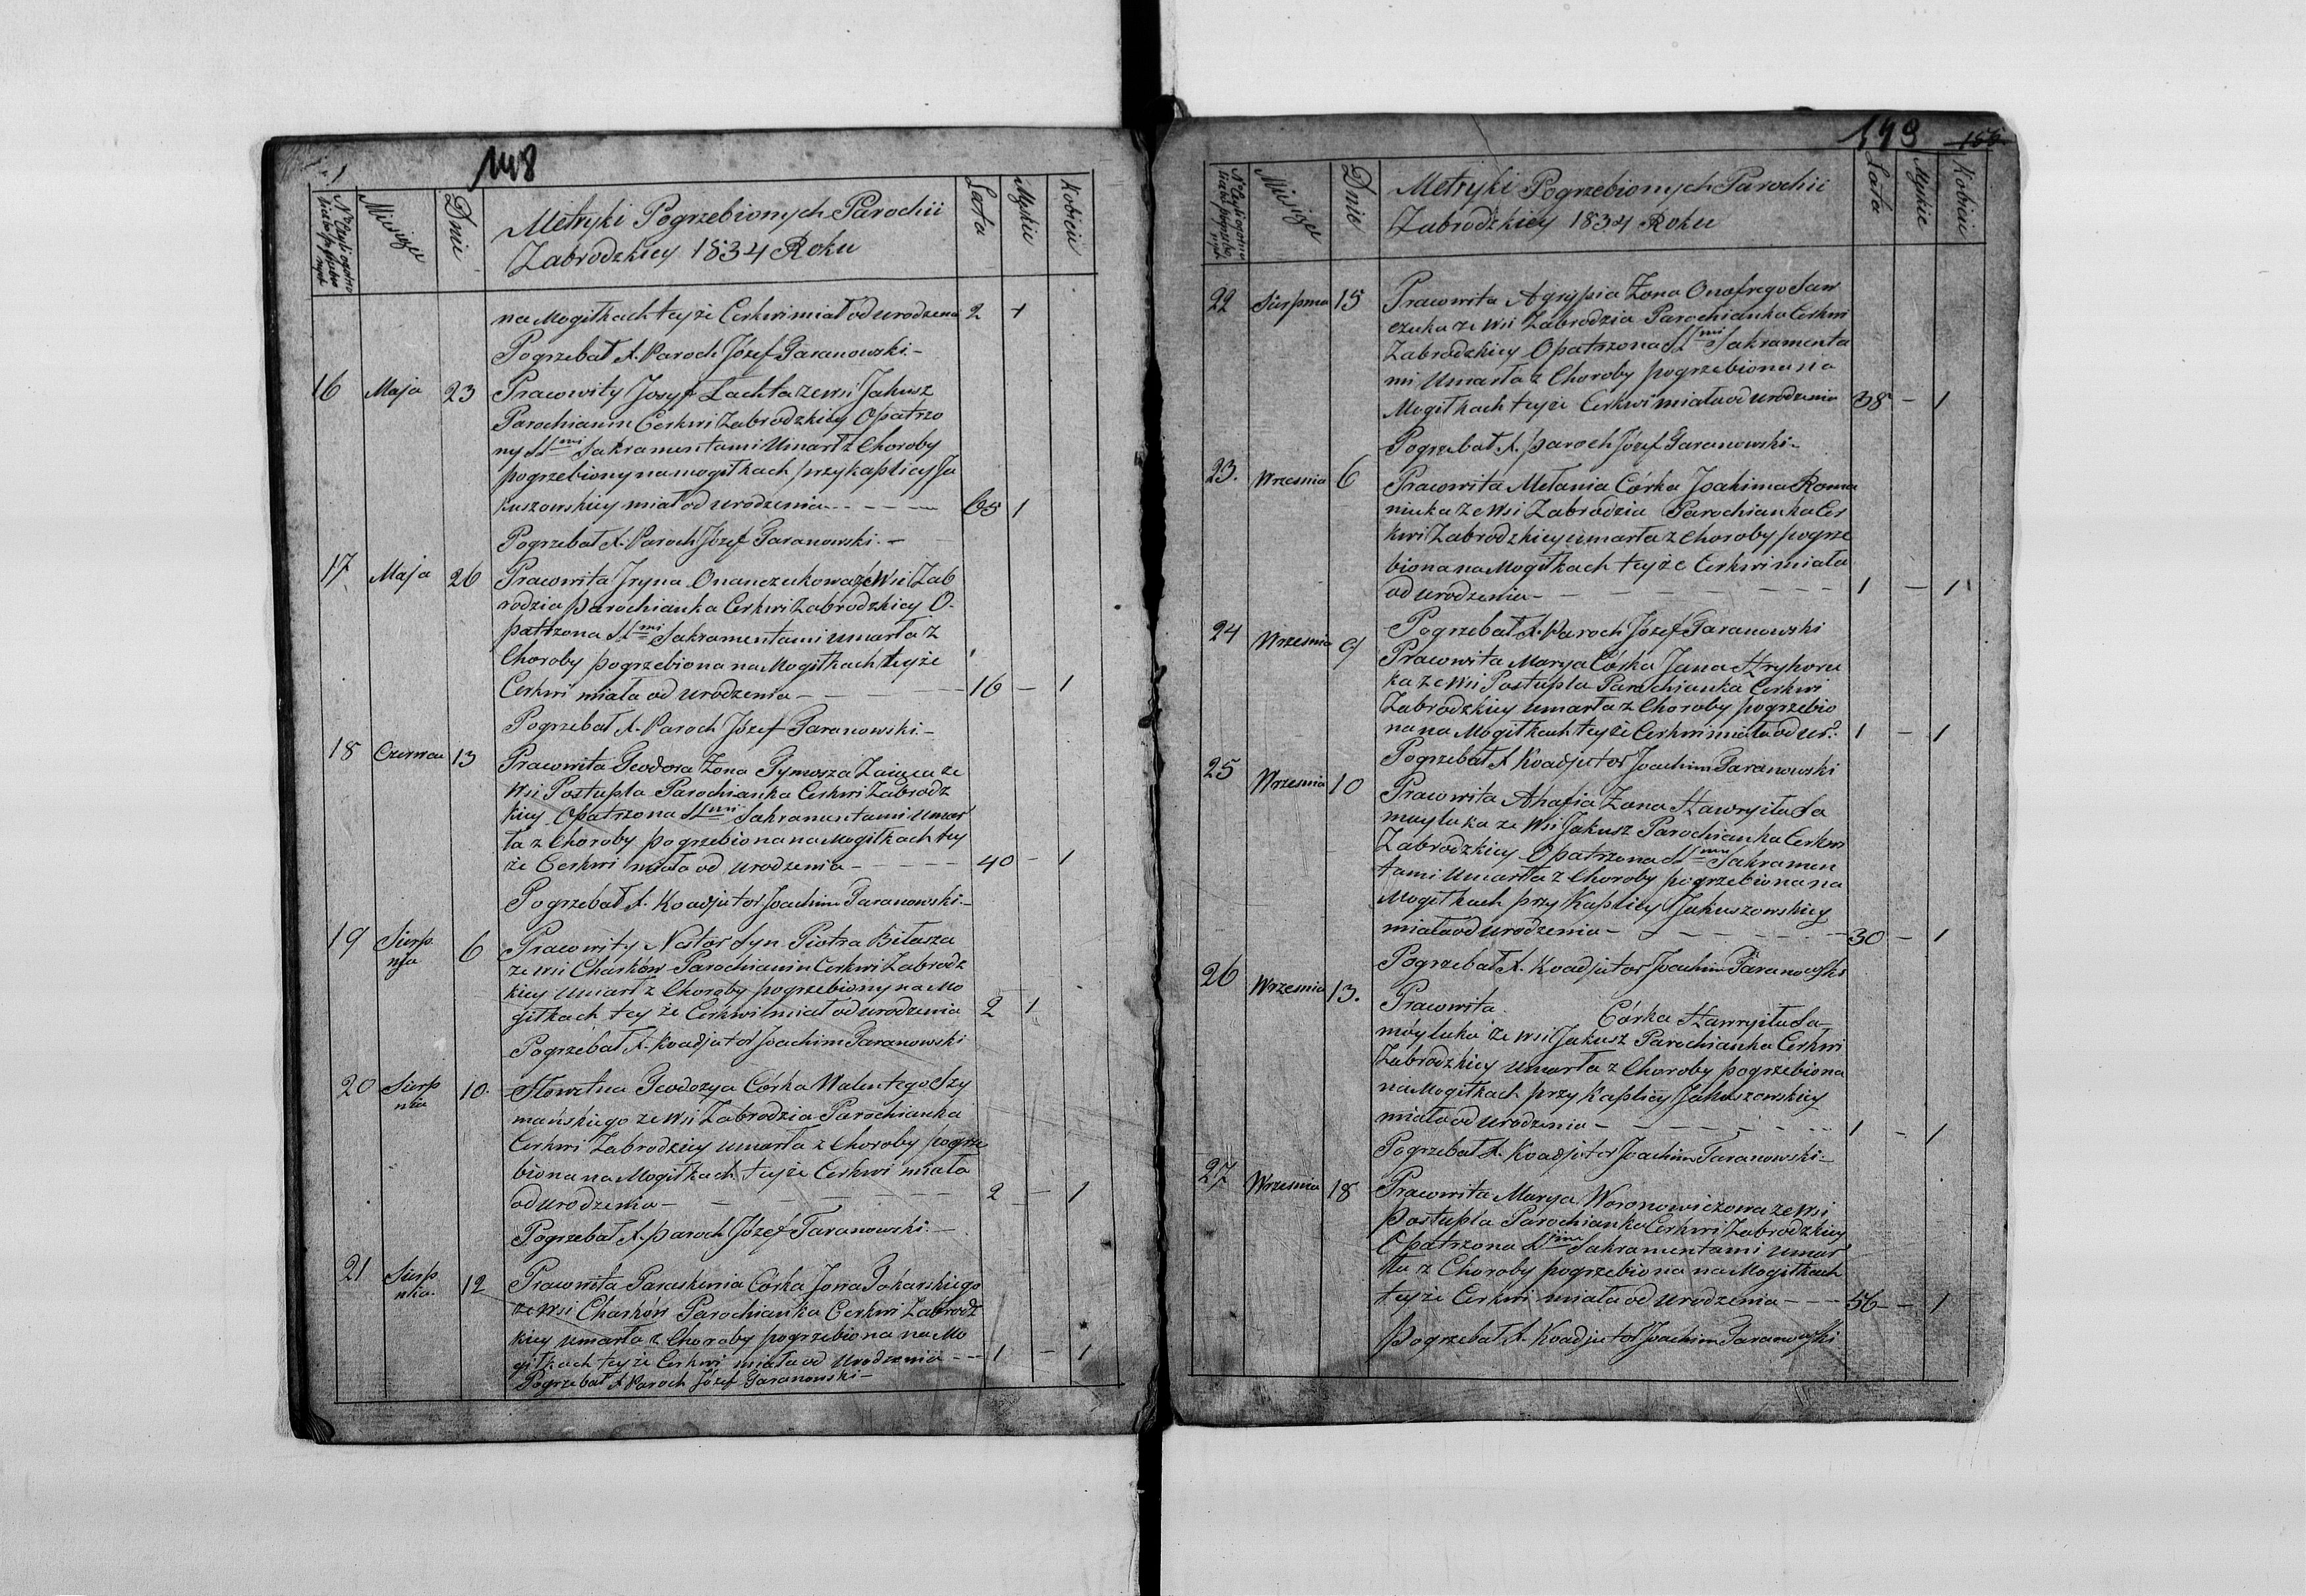 148
Miesiąc
Dnie
Metryki Pogrzebionych Parochii
Zabrodzkiey 1834 Roku
Lata
Męskie
Kobicie
na Mogiłkach teyże Cerkwi miał od urodzenia 2 1
Pogrzebał X. Paroch Józef Taranowski.-
16 Maja 23 Pracowity Josyf Lachta ze wsi Jakusz
Parochianin Cerkwi Zabrodzkiey Opatrzo
ny SS.mi Sakramentami Umarł z Choroby
pogrzebiony na mogiłkach przy kaplicy Ja
kuszowskiey miał od urodzenia - - - - 65 1
Pogrzebał X. Paroch Józef Taranowski. -
17 Maja 26 Pracowita Jryna Onanczukowa ze Wsi Zab
rodzia parochianka Cerkwi Zabrodzkiey O-
patrzona SS.mi Sakramentami umarła z
Choroby pogrzebiona na Mogiłkach teyże
Cerkwi miała od urodzenia - - - 16 - 1
Pogrzebał X. Paroch Józef Taranowski.-
18 Czerwca 13 Pracowita Teodora Żona Tymosza Zaiąca ze
Wsi Postupla Parochianka Cerkwi Zabrodz
kiey Opatrzona SS.mi Sakramentami umar
ła z Choroby pogrzebiona na Mogiłkach tey
że Cerkwi miała od urodzenia - - - - 40 - 1
Pogrzebał X. Koadjutor Joachim Taranowski.-
19 Sierp
nia 6 Pracowity Nestor Syn Piotra Bitasza
ze wsi Charków Parochianin Cerkwi Zabrodz
kiey Umarł z Choroby pogrzebiony na Mo
giłkach tey że Cerkwi miał od urodzenia 2 1
Pogrzebał X. Koadjutor Joachim Taranowski
20 Sierp
nia 10. Sławetna Teodozya Córka Walentego Szy
mańskiego ze wsi Zabrodzia Parochianka
Cerkwi Zabrodzkiey umarła z Choroby pogrze
biona na Mogiłkach teyże Cerkwi miała
od urodzenia - - - - - 2 - 1
Pogrzebał X. paroch Józef Taranowski. -
21 Sierp
nia. 12 Pracowita Paraskewia Córka Jowa Tokarskiego
ze wsi Charków Parochianka Cerkwi Zabrodz
kiey umarła z Choroby pogrzebiona na Mo
giłkach teyże Cerkwi miała od Urodzenia - - 1 - 1
Pogrzebał X Paroch Józef Taranowski -
149 156
Miesiąc
Dnie
Metryki Pogrzebionych Parochii
Zabrodzkiey 1834 Roku
Lata
Męskie
Kobicie
22 Sierpnia 15 Pracowita Agrypia Żona Onofrego Saw
czuka ze wsi Zabrodzia Parochianka Cerkwi
Zabrodzkiey Opatrzona SS.mi Sakramenta
mi Umarła z Choroby pogrzebiona na
Mogiłkach teyże Cerkwi miała od urodzenia 38 - 1
Pogrzebał X. paroch Józef Taranowski-
23. Wrzesnia 6 Pracowita Melania Córka Joahima Roma
niuka ze wsi Zabrodzia Parochianka Cer
kwi Zabrodzkiey umarła z choroby pogrze
biona na Mogiłkach teyże Cerkwi miała
od urodzenia - - - - - - - 1 - 1
Pogrzebał X. Paroch Józef Taranowski
24 Wrzesnia 9 Pracowita Marya Córka Jana Hryhoru
ka ze wsi Postupla Parochianka Cerkwi
Zabrodzkiey umarła z Choroby pogrzebio
na na Mogiłkach teyże Cerkwi miała od ur. 1 - 1
Pogrzebał X Koadjutor Joachim Taranowski
25 Wrzesnia 10 Pracowita Ahafia Żona Hawryiła Sa
muyluka ze Wsi Jakusz Parochianka Cerkwi
Zabrodzkiey Opatrzona SS.mi Sakramen
tami umarła z Choroby pogrzebiona na
Mogiłkach przy Kaplicy Jakuszowskiey
miała od urodzenia - - - - - - 30 - 1
Pogrzebał X. Koadjutor Joachim Taranowski
26 Wrzesnia 13. Pracowita Córka Hawryiła Sa-
moyluka ze wsi Jakusz Parochianka Cerkwi
Zabrodzkiey umarła z Choroby pogrzebiona
na Mogiłkach przy Kaplicy Jakuszowskiey
miała od urodzenia - - - - - - 1 - 1
Pogrzebał X. Koadjutor Joachim Taranowski-
27 Wrzesnia 18 Pracowita Marya Woronowiczowa ze wsi
Postupla Parochianka Cerkwi Zabrodzkiey
Opatrzona SS.mi Sakramentami umar
ła z Choroby pogrzebiona na Mogiłkach
teyże Cerkwi miała od urodzenia - - - 56 - 1
Pogrzebał X. Koadjutor Joachim Taranowski